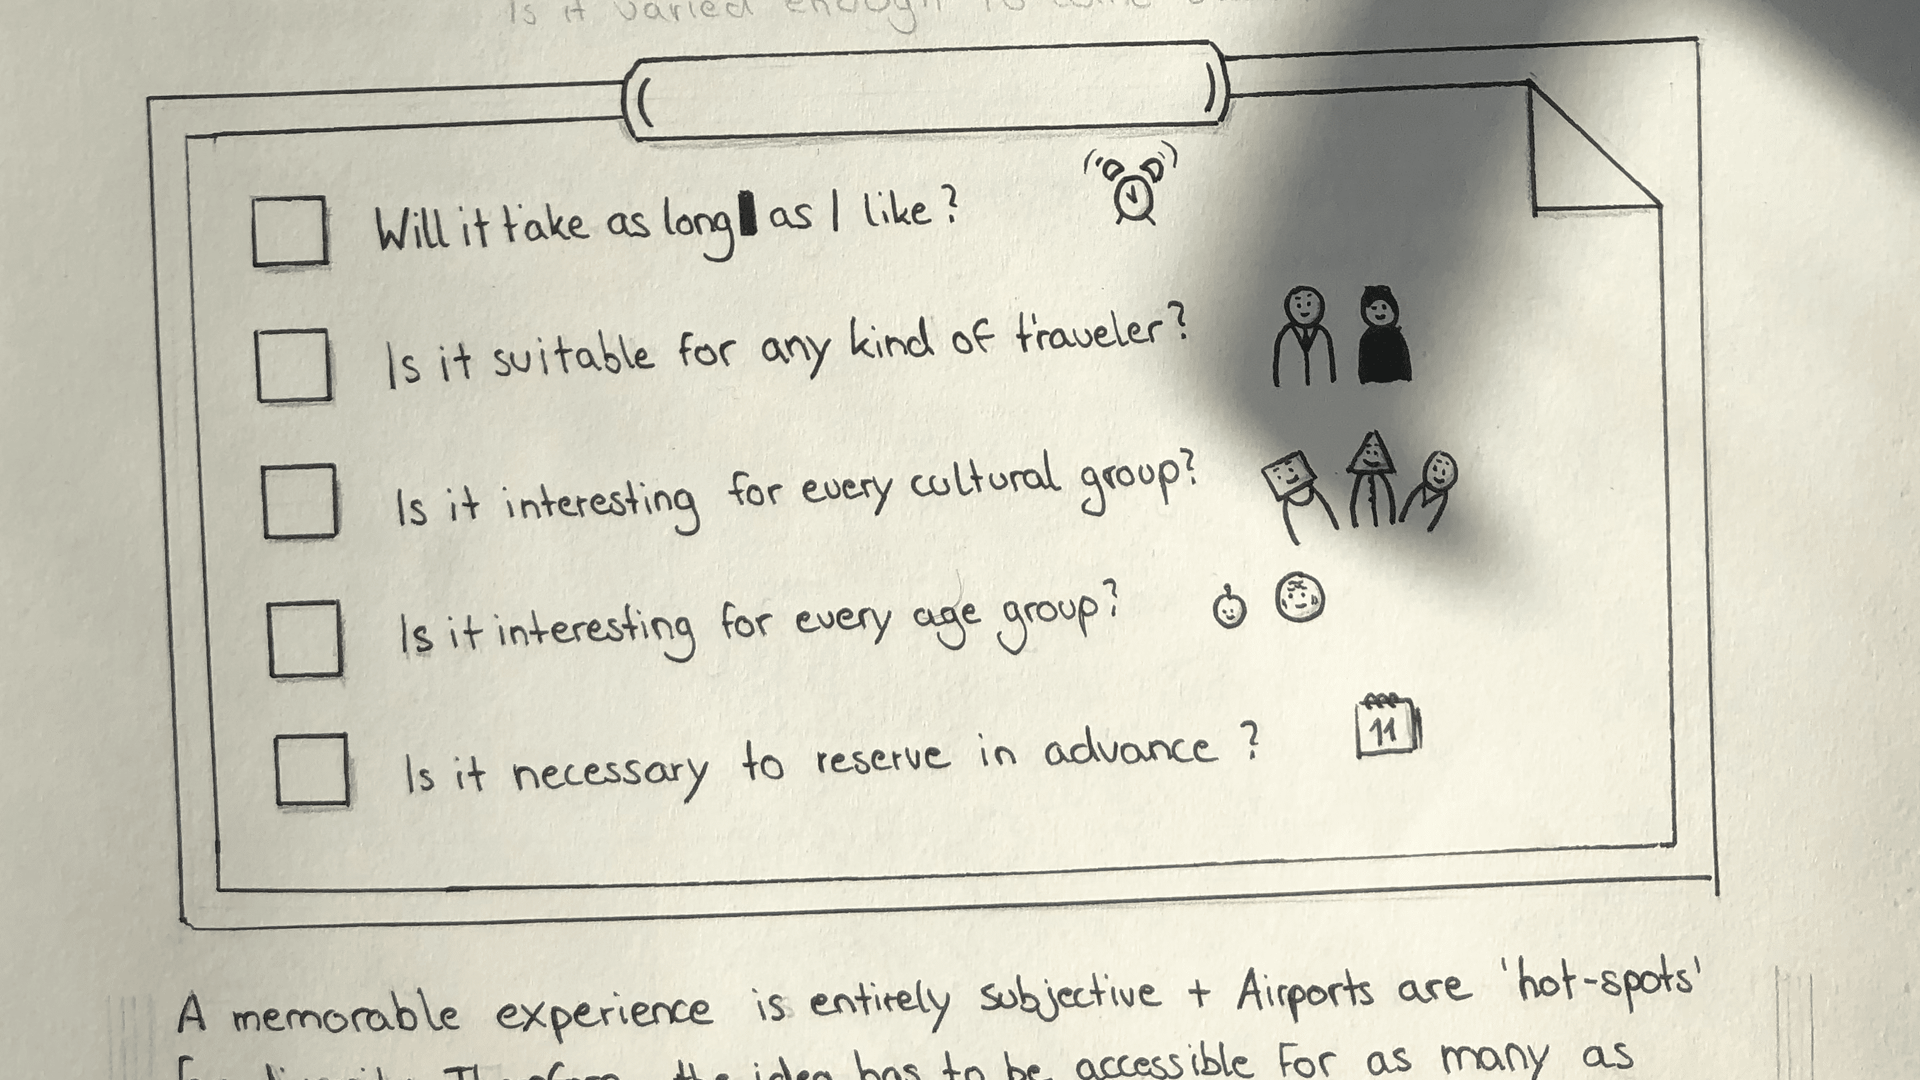 Is it varied enough to
Will it take as long as I like?
Is it suitable for any kind of traveler?
Is it interesting for every cultural group?
Is it interesting for every age group?
Is it necessary to reserve in advance ?
11
A memorable experience is entirely subjective + Airports are 'hot-spots'
the idea has to be accessible for as many as